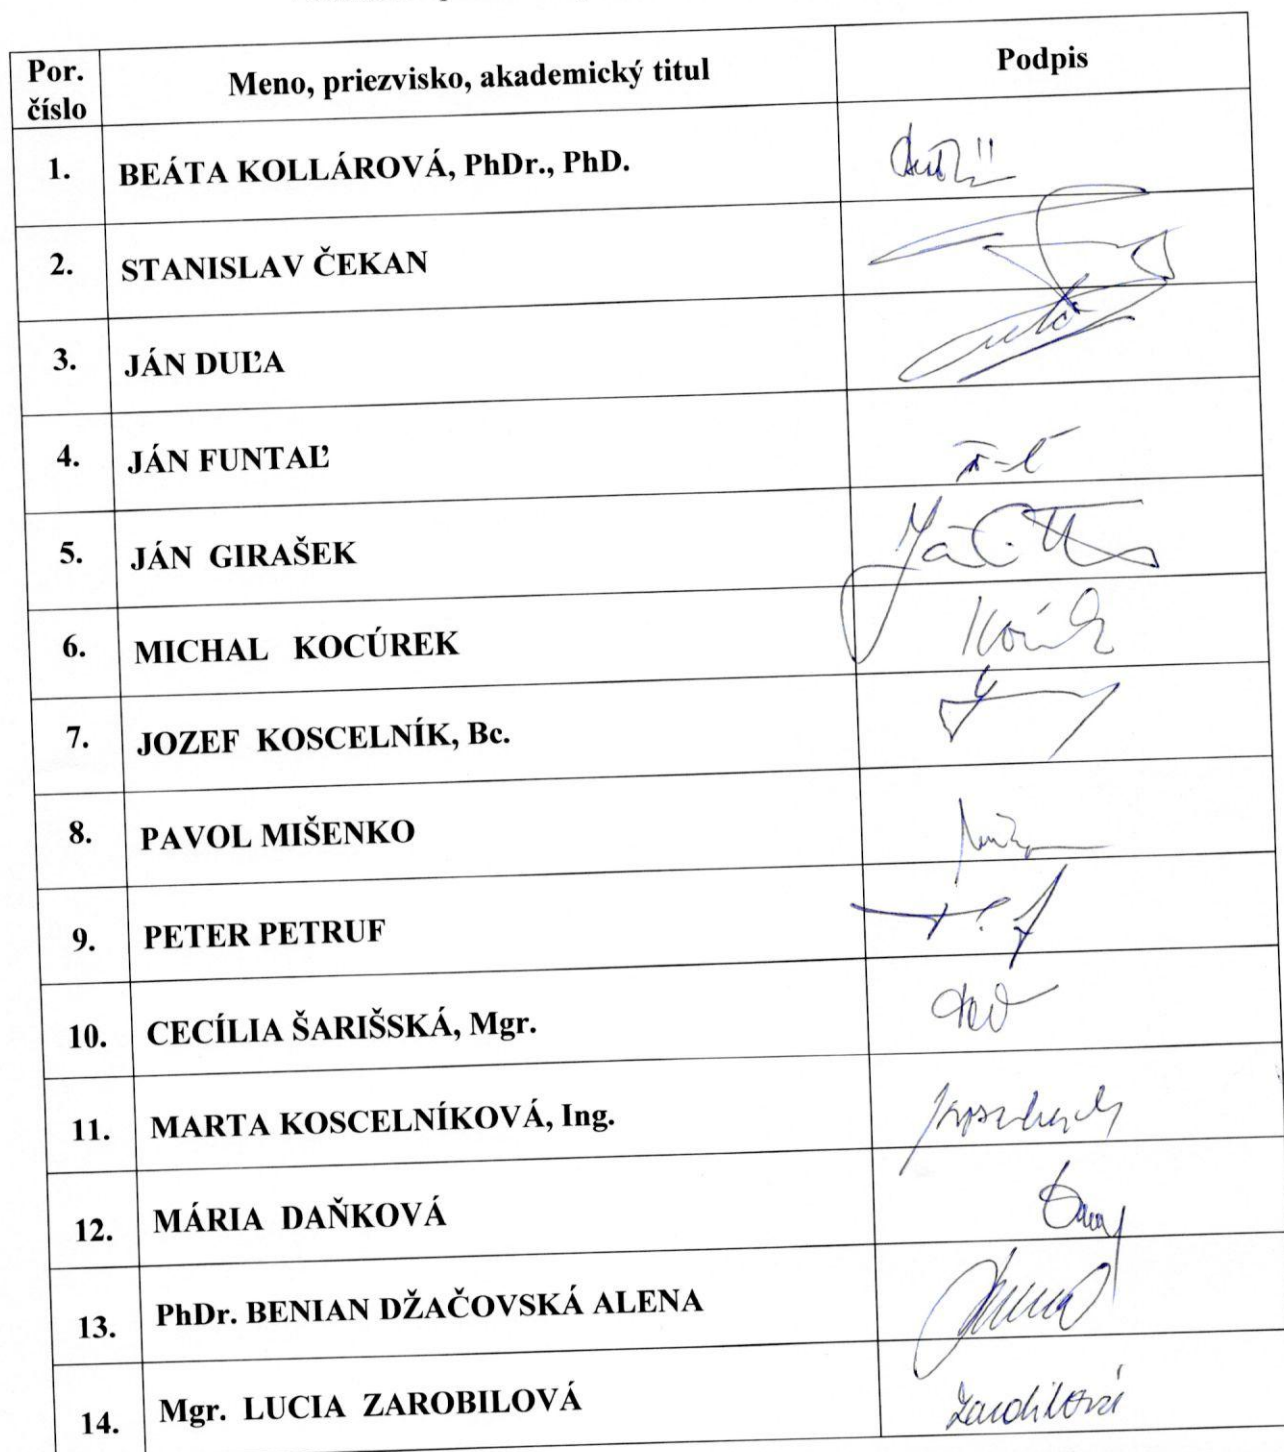 Por. číslo Meno, priezvisko, akademický titul Podpis
1. BEÁTA KOLLÁROVÁ, PhDr., PhD.
2. STANISLAV ČEKAN
3. JÁN DUĽA
4. JÁN FUNTAĽ
5. JÁN GIRAŠEK
6. MICHAL KOCÚREK
7. JOZEF KOSCELNÍK, Bc.
8. PAVOL MIŠENKO
9. PETER PETRUF
10. CECÍLIA ŠARIŠSKÁ, Mgr.
11. MARTA KOSCELNÍKOVÁ, Ing.
12. MÁRIA DAŇKOVÁ
13. PhDr. BENIAN DŽAČOVSKÁ ALENA
14. Mgr. LUCIA ZAROBILOVÁ